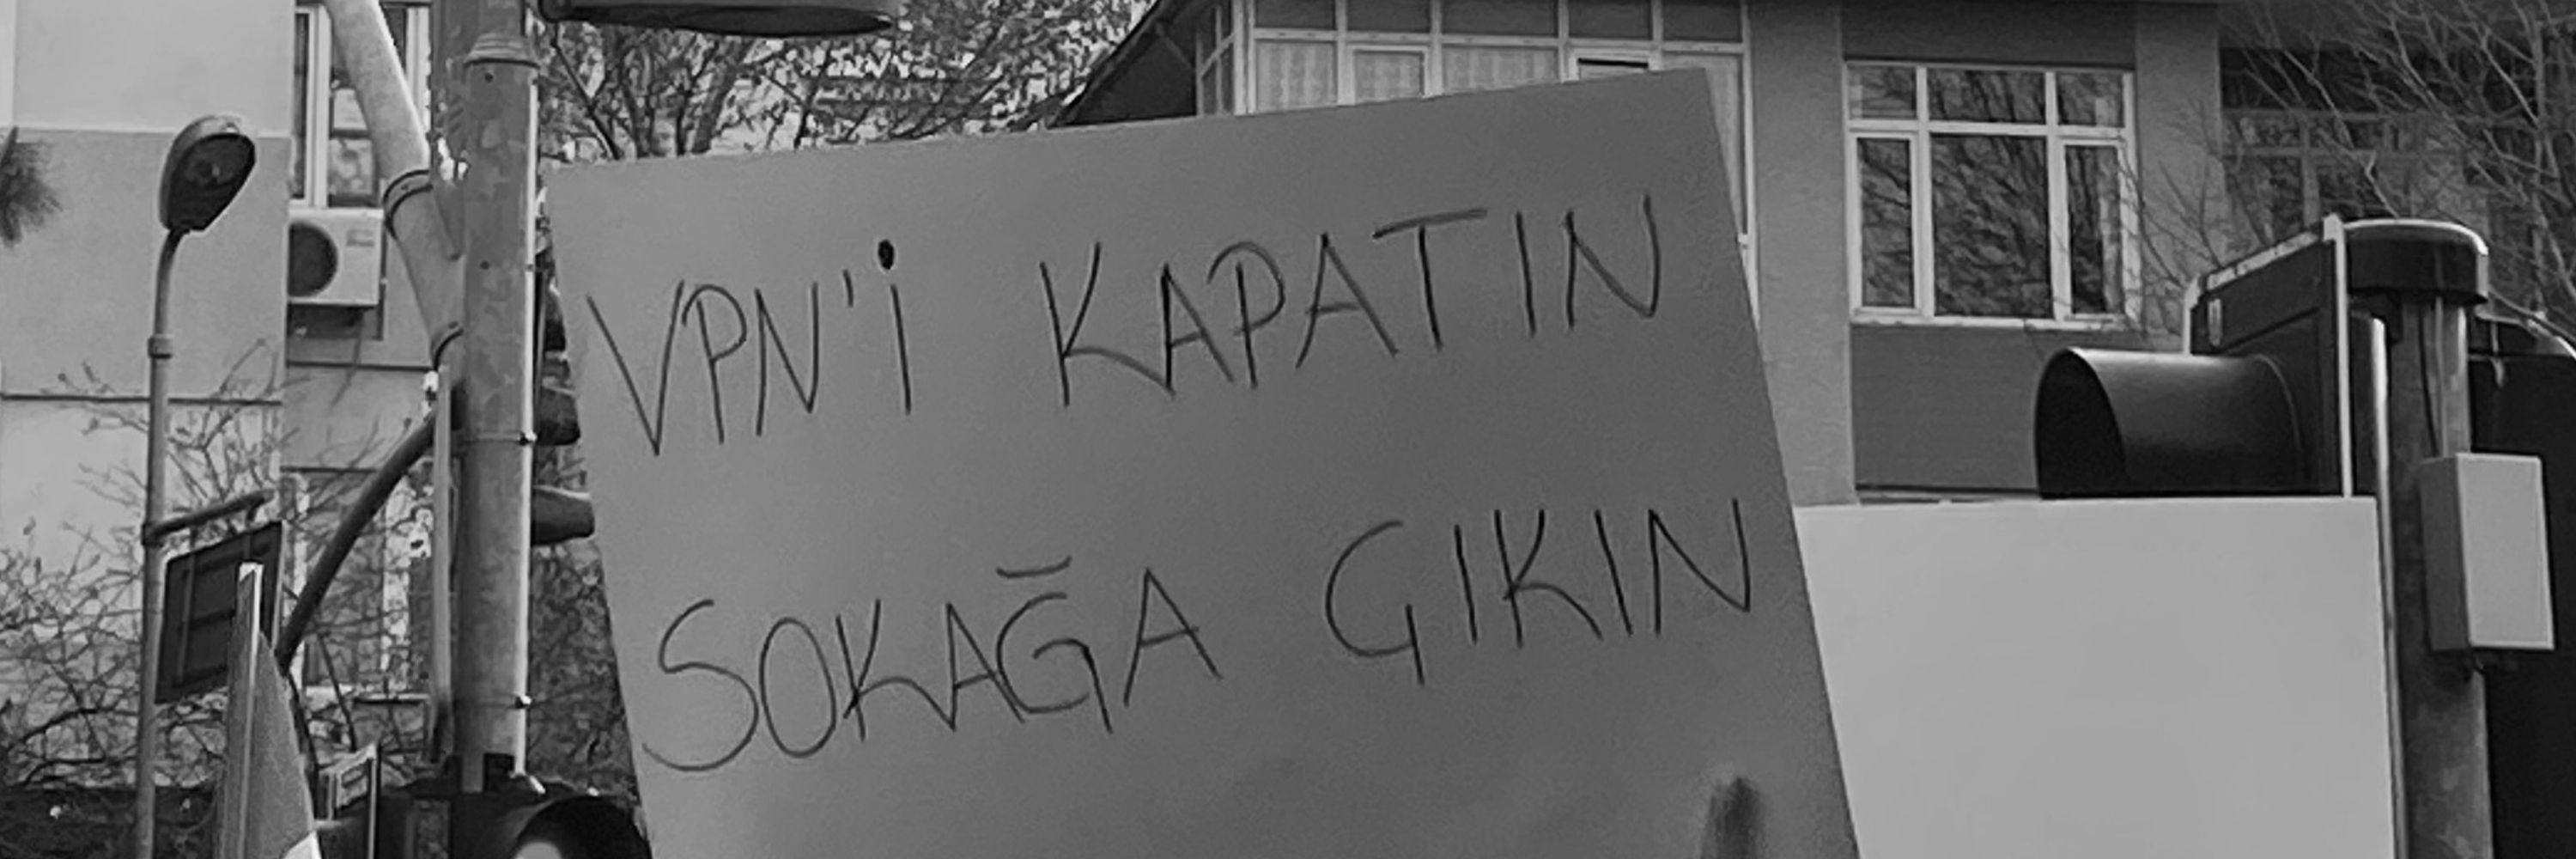 VPN'i KAPATIN
SOKAĞA ÇIKIN